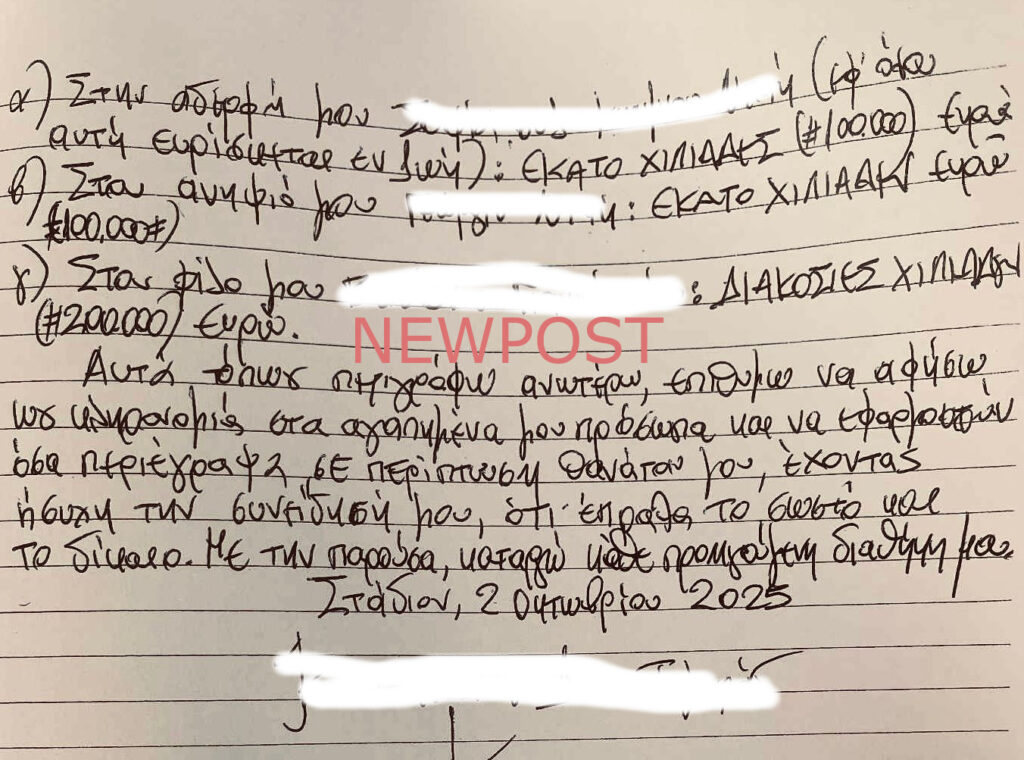 α) Στην αδερφή μου (εφ' όσον
αυτή ευρίσκεται εν ζωή): ΕΚΑΤΟ ΧΙΛΙΑΔΕΣ (#100.000) Ευρώ
β) Στον ανηψιό μου : ΕΚΑΤΟ ΧΙΛΙΑΔΕΣ Ευρώ
(#100.000#)
γ) Στον φίλο μου : ΔΙΑΚΟΣΙΕΣ ΧΙΛΙΑΔΕΣ
(#200.000) Ευρώ.
NEWPOST
Αυτά, όπως περιγράφω ανωτέρω, επιθυμώ να αφήσω
ως κληρονομιά στα αγαπημένα μου πρόσωπα και να εφαρμοστούν
όσα περιέγραψα, σε περίπτωση θανάτου μου, έχοντας
ήσυχη την συνείδησή μου, ότι έπραξα το σωστό και
το δίκαιο. Με την παρούσα, καταργώ κάθε προηγούμενη διαθήκη μου.
Στάδιον, 2 Οκτωβρίου 2025